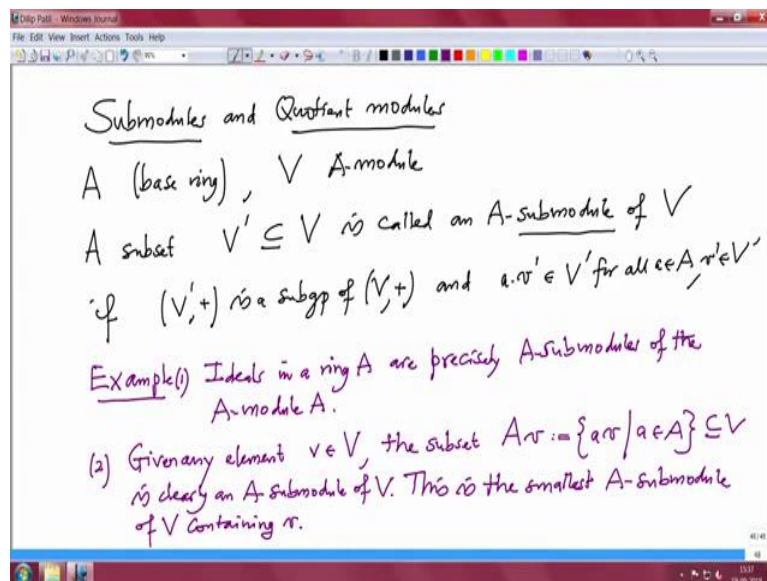 Dilip Patil - Windows Journal
File Edit View Insert Actions Tools Help
Submodules and Quotient modules
A (base ring), V A-module
A subset V' ⊆ V is called an A-submodule of V
if (V',+) is a subgp of (V,+) and a.v' ∈ V' for all a∈A, v'∈V'
Example(1) Ideals in a ring A are precisely A-submodules of the
A-module A.
(2) Given any element v ∈ V, the subset Av := {av | a∈A} ⊆ V
is clearly an A-submodule of V. This is the smallest A-submodule
of V containing v.
15:37